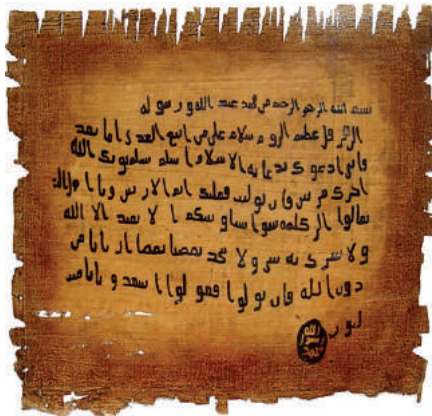 بسم الله الرحمن الرحيم من محمد عبد الله ورسوله
الى هرقل عظيم الروم سلام على من اتبع الهدى اما بعد
فاني ادعوك بدعاية الاسلام اسلم تسلم يوتك الله
اجرك مرتين فان توليت فعليك اثم الاريسين ويا
تعالوا الى كلمه سوا بيننا وبينكم الا نعبد الا الله
ولا نشرك به شيا ولا يتخذ بعضنا بعضا اربابا من
دون الله فان تولوا فقولوا اشهدوا بانا مس
لمون
الله
رسول
محمد